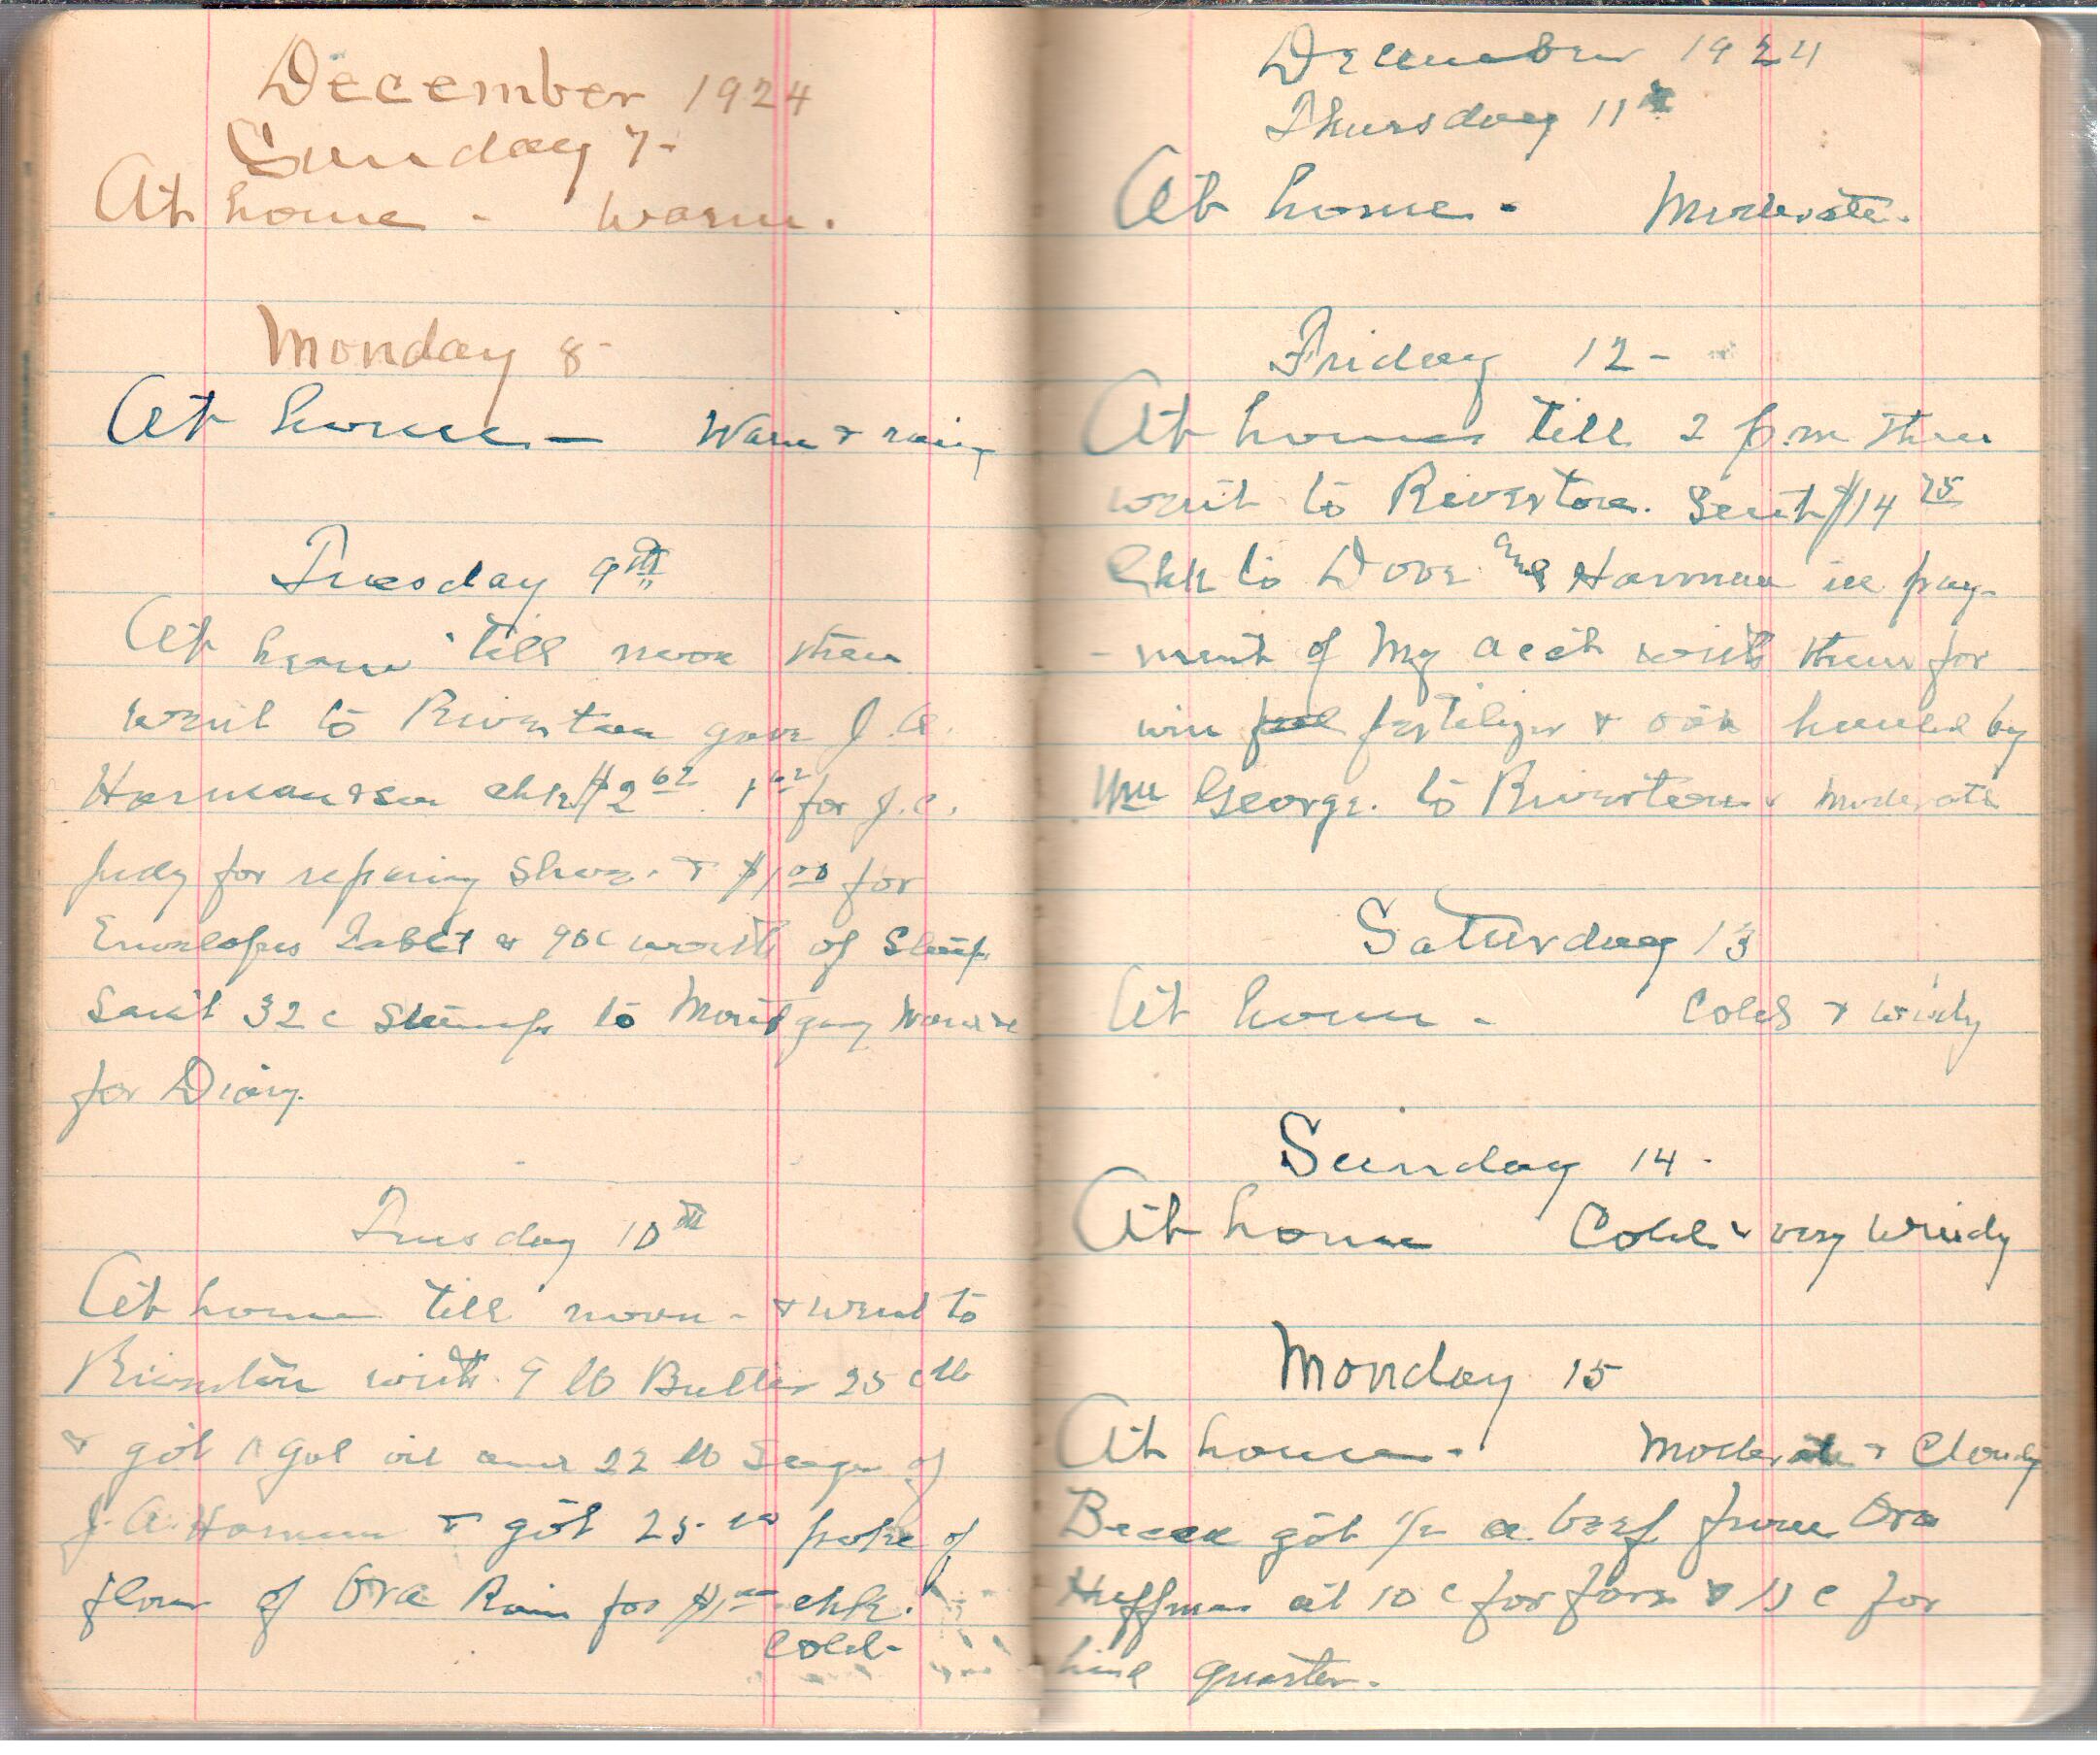 December 1924
Sunday 7-
At home - Warm.
Monday 8-
At home - Warm & rainy
Tuesday 9th
At home till noon then
went to Riverton gave J. A.
Harman & son chk $2 62. 1 62 for J. C.
Judy for repairing Shoes. & $1 00 for
Envelopes Tablet & 90c worth of Stamps
Sent 32 c Stamps to
for Diary.
Tuesday 10th
At home till noon - & went to
Riverton with 9 lb Butter 25 c lb
& got 1 gal oil and 22 lb Sugar of
J. A. Harman & got 25 lb poke of
flour of Ora for $1 00 chk.
Cold-
December 1924
Thursday 11th
At home. Moderate.
Friday 12-
At home till 2 p.m then
went to Riverton. Sent $14 75
Chk to Dove and Harman in pay-
- ment of My acct with them for
fertilizer & hauled by
Wm George. to Riverton. Moderate
Saturday 13
At home - Cold & windy
Sunday 14-
At home Cold & very Windy
Monday 15
At home. Moderate & Cloudy
got 1/2 a beef from Ora
Huffman at 10 c for fore & 11 c for
hind quarter.